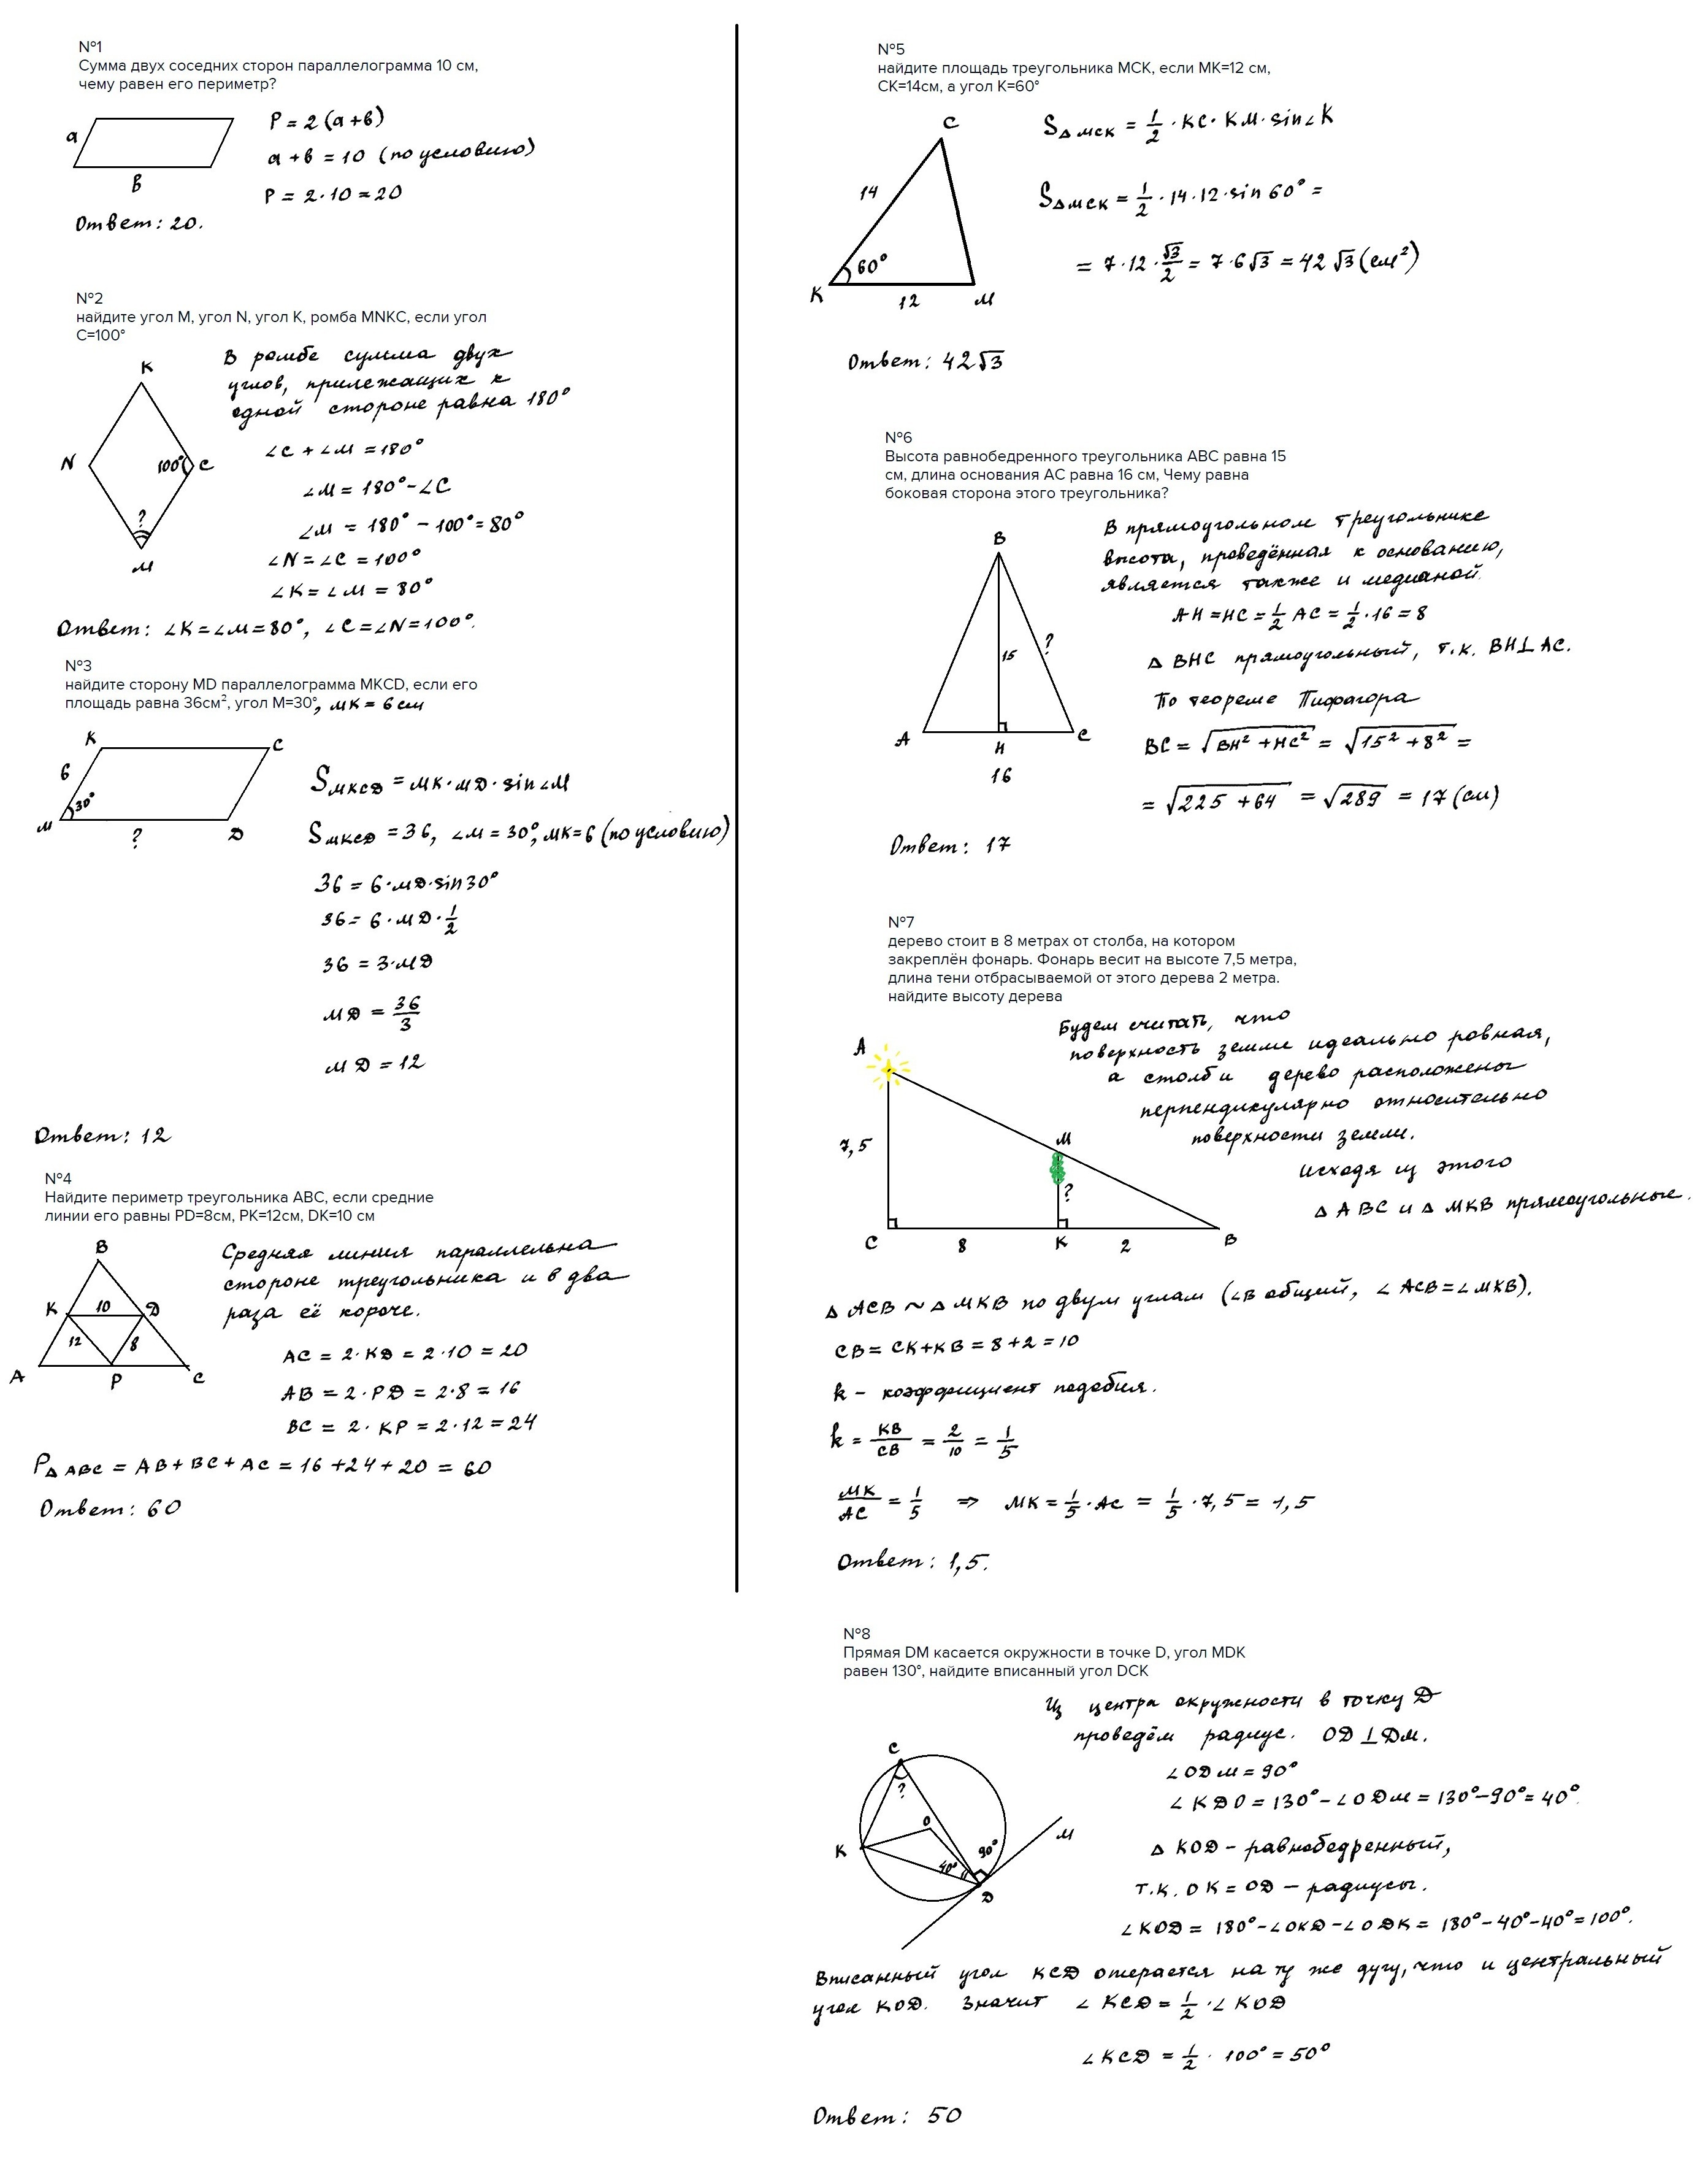 №1
Сумма двух соседних сторон параллелограмма 10 см,
чему равен его периметр?
a
в
P = 2(a+в)
a+в = 10 (по условию)
P = 2·10 = 20
Ответ: 20.
№2
найдите угол M, угол N, угол K, ромба MNKC, если угол
C=100°
K
N
100°
C
?
M
В ромбе сумма двух
углов, прилежащих к
одной стороне равна 180°
∠C + ∠M = 180°
∠M = 180° - ∠C
∠M = 180° - 100° = 80°
∠N = ∠C = 100°
∠K = ∠M = 80°
Ответ: ∠K=∠M=80°, ∠C=∠N=100°.
№3
найдите сторону MD параллелограмма MKCD, если его
площадь равна 36см², угол M=30°, MK = 6 см
K
C
6
30°
M
?
D
S MKCD = MK·MD·sin∠M
S MKCD = 36, ∠M = 30°, MK=6 (по условию)
36 = 6·MD·sin30°
36 = 6·MD·1/2
36 = 3·MD
MD = 36/3
MD = 12
Ответ: 12
№4
Найдите периметр треугольника ABC, если средние
линии его равны PD=8см, PK=12см, DK=10 см
B
K
10
D
12
8
A
P
C
Средняя линия параллельна
стороне треугольника и в два
раза её короче.
AC = 2·KD = 2·10 = 20
AB = 2·PD = 2·8 = 16
BC = 2·KP = 2·12 = 24
P△ABC = AB+BC+AC = 16+24+20 = 60
Ответ: 60
№5
найдите площадь треугольника MCK, если MK=12 см,
CK=14см, а угол K=60°
C
14
60°
K
12
M
S△MCK = 1/2·KC·KM·sin∠K
S△MCK = 1/2·14·12·sin60° =
= 7·12·√3/2 = 7·6√3 = 42√3 (см²)
Ответ: 42√3
№6
Высота равнобедренного треугольника ABC равна 15
см, длина основания AC равна 16 см, Чему равна
боковая сторона этого треугольника?
B
15
?
A
H
C
16
В прямоугольном треугольнике
высота, проведённая к основанию,
является также и медианой.
AH = HC = 1/2 AC = 1/2·16 = 8
△ BHC прямоугольный, т.к. BH⊥AC.
По теореме Пифагора
BC = √BH² + HC² = √15² + 8² =
= √225 + 64 = √289 = 17 (см)
Ответ: 17
№7
дерево стоит в 8 метрах от столба, на котором
закреплён фонарь. Фонарь весит на высоте 7,5 метра,
длина тени отбрасываемой от этого дерева 2 метра.
найдите высоту дерева
A
7,5
M
?
C
8
K
2
B
Будем считать, что
поверхность земли идеально ровная,
а столб и дерево расположены
перпендикулярно относительно
поверхности земли.
Исходя из этого
△ ABC и △ MKB прямоугольные.
△ ACB ~ △ MKB по двум углам (∠B общий, ∠ACB=∠MKB).
CB = CK+KB = 8+2 = 10
k - коэффициент подобия.
k = KB/CB = 2/10 = 1/5
MK/AC = 1/5 ⇒ MK = 1/5·AC = 1/5·7,5 = 1,5
Ответ: 1,5.
№8
Прямая DM касается окружности в точке D, угол MDK
равен 130°, найдите вписанный угол DCK
C
?
O
K
40°
90°
M
D
Из центра окружности в точку D
проведём радиус. OD ⊥ DM.
∠ODM = 90°
∠KDO = 130° - ∠ODM = 130° - 90° = 40°
△ KOD - равнобедренный,
т.к. OK = OD - радиусы.
∠KOD = 180° - ∠OKD - ∠ODK = 180° - 40° - 40° = 100°.
Вписанный угол KCD опирается на ту же дугу, что и центральный
угол KOD. Значит ∠KCD = 1/2·∠KOD
∠KCD = 1/2·100° = 50°
Ответ: 50